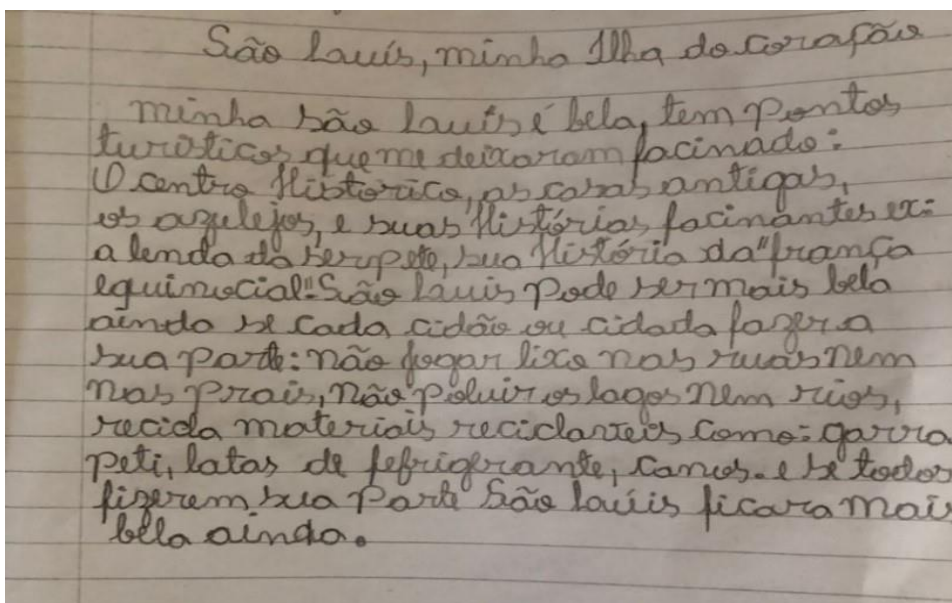 São Lauís, minha Ilha do coração
minha são lauís é bela, tem pontos
turisticos que me deixaram facinado:
O centro Historico, as casas antigas,
os azulejos, e suas Histórias facinantes ex:
a lenda da serpete, sua História da "frança
equinocial". São Lauis pode ser mais bela
ainda se cada cidão ou cidada fazer a
sua parte: não jogar lixo nas ruas nem
nas prais, não poluir os lagos nem rios,
recicla materiais reciclaveis como: garra
peti, latas de fefrigerante, canos. e se todos
fizerem sua parte São lauís ficara mais
bela ainda.